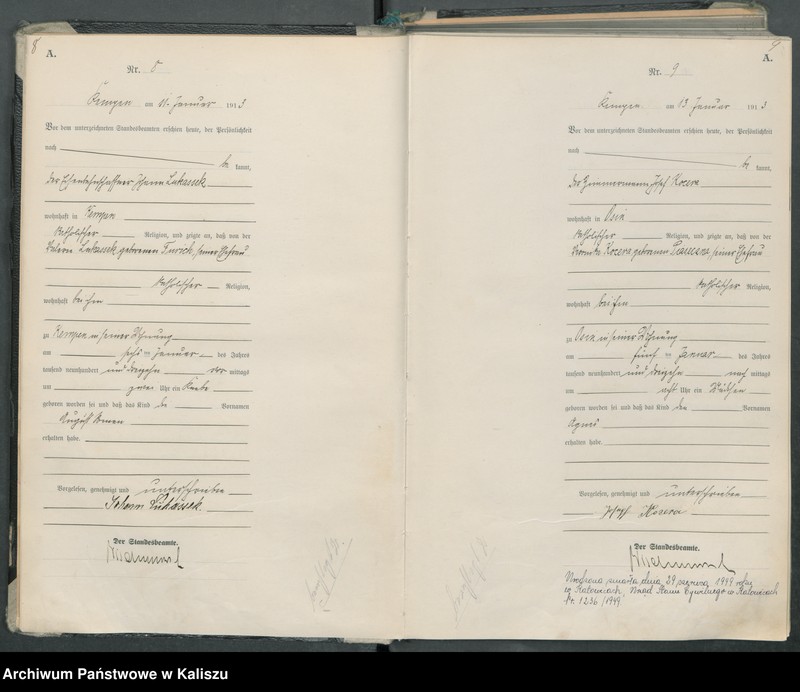 8
A.
Nr. 8
Kempen am 11. Januar 1913
Vor dem unterzeichneten Standesbeamten erschien heute, der Persönlichkeit
nach
be kannt,
der Johann Lukassek
wohnhaft in Kempen
katholischer Religion, und zeigte an, daß von der
Lukassek geborenen seiner Ehefrau
katholischer Religion,
wohnhaft bei ihm
zu Kempen in seiner Wohnung
am sechs ten Januar des Jahres
tausend neunhundert und dreizehn vor mittags
um zwei Uhr ein Knabe
geboren worden sei und daß das Kind die Vornamen
August
erhalten habe.
Vorgelesen, genehmigt und unterschrieben
Johann Lukassek
Der Standesbeamte.
9
A.
Nr. 9
Kempen am 13 Januar 1913
Vor dem unterzeichneten Standesbeamten erschien heute, der Persönlichkeit
nach
be kannt,
der Zimmermann Josef Kocera
wohnhaft in Osin
katholischer Religion, und zeigte an, daß von der
Kocera geborenen seiner Ehefrau
katholischer Religion,
wohnhaft bei ihm
zu Osin in seiner Wohnung
am fünf ten Januar des Jahres
tausend neunhundert und dreizehn nach mittags
um acht Uhr ein Mädchen
geboren worden sei und daß das Kind den Vornamen
Agnes
erhalten habe.
Vorgelesen, genehmigt und unterschrieben
Josef Kocera
Der Standesbeamte.
zmarła dnia 29 sierpnia 1949 roku
w Katowicach, Urząd Stanu Cywilnego w Katowicach
Nr. 1236/1949
Archiwum Państwowe w Kaliszu